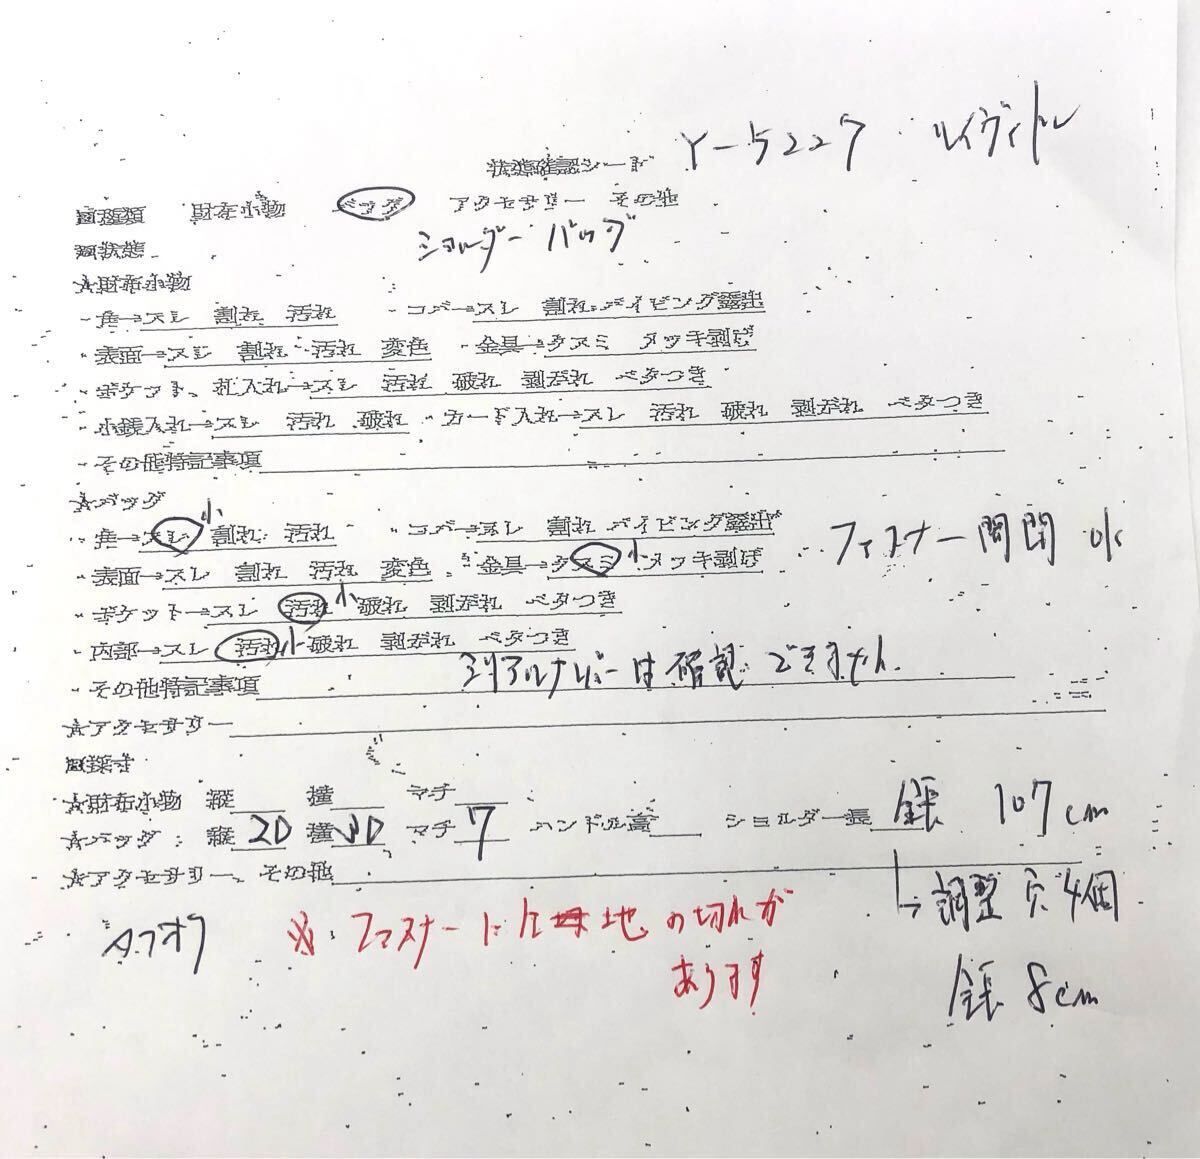 状態確認シート Y-5227 ルイヴィトン
■種類 財布小物 バッグ アクセサリー その他
ショルダーバッグ
■状態
★財布小物
・角→スレ 割れ 汚れ ・コバ→スレ 割れ パイピング露出
・表面→スレ 割れ 汚れ 変色 ・金具→クスミ メッキ剥げ
・ポケット、札入れ→スレ 汚れ 破れ 剥がれ ベタつき
・小銭入れ→スレ 汚れ 破れ ・カード入れ→スレ 汚れ 破れ 剥がれ ベタつき
・その他特記事項
★バッグ
・角→スレ小 割れ 汚れ ・コバ→スレ 割れ パイピング露出 ・ファスナー開閉 OK
・表面→スレ 割れ 汚れ 変色 ・金具→クスミ小 メッキ剥げ
・ポケット→スレ 汚れ小 破れ 剥がれ ベタつき
・内部→スレ 汚れ小 破れ 剥がれ ベタつき
・その他特記事項 シリアルナンバーは確認できません。
★アクセサリー
■採寸
★財布小物 縦 横 マチ
★バッグ:縦20 横30 マチ7 ハンドル高 ショルダー長 全長 107cm
★アクセサリー、その他
↳調整穴4個
ヤフオク ※ファスナーに 生地の切れが
あります
全長 8cm